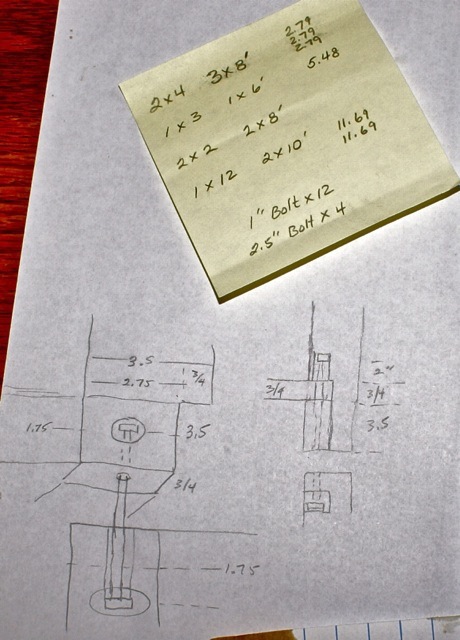 2x4 3x8' 2.79
2.79
2.79
1x3 1x6' 5.48
2x2 2x8'
1x12 2x10' 11.69
11.69
1" Bolt x 12
2.5" Bolt x 4
3.5
2.75 3/4
1.75 3.5
3/4
1.75
2"
3/4 3/4
3.5